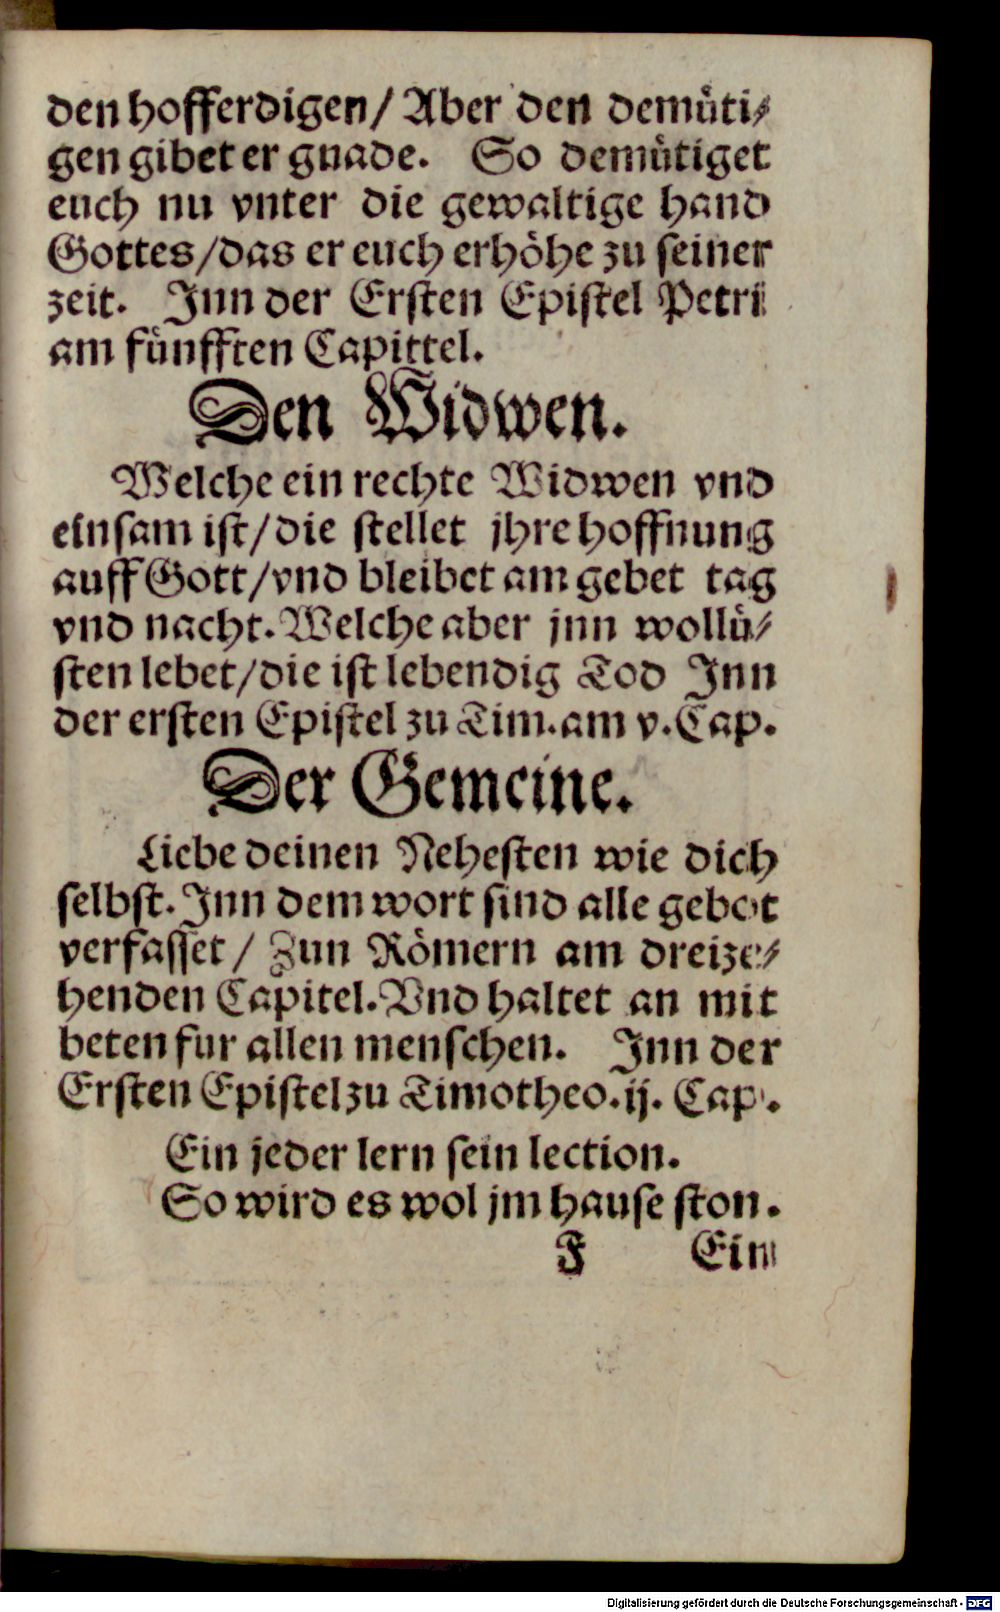 den hofferdigen/ Aber den demuͤti⸗
gen gibet er gnade. So demuͤtiget
euch nu vnter die gewaltige hand
Gottes/das er euch erhoͤhe zu seiner
zeit. Inn der Ersten Epistel Petri
am fuͤnfften Capittel.
Den Widwen.
Welche ein rechte Widwen vnd
einsam ist/die stellet jhre hoffnung
auff Gott/vnd bleibet am gebet tag
vnd nacht. Welche aber jnn wolluͤ⸗
sten lebet/die ist lebendig Tod Inn
der ersten Epistel zu Tim.am v.Cap.
Der Gemeine.
Liebe deinen Nehesten wie dich
selbst. Inn dem wort sind alle gebot
verfasset / Zun Roͤmern am dreize⸗
henden Capitel. Vnd haltet an mit
beten fur allen menschen. Inn der
Ersten Epistel zu Timotheo.ij. Cap.
Ein jeder lern sein lection.
So wird es wol jm hause ston.
F Ein
Digitalisierung gefördert durch die Deutsche Forschungsgemeinschaft - DFG